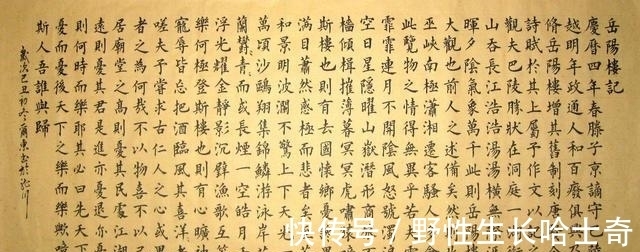 岳陽樓記
慶曆四年春滕子京謫守
越明年政通人和百廢俱
脩岳陽樓增其舊制刻
詩賦於其上屬予作文
觀夫巴陵勝狀在洞庭一
山吞長江浩浩湯湯橫
暉夕陰氣象萬千此則
大觀也前人之述備矣然
巫峽南極瀟湘遷客騷
此覽物之情得無異乎若
霏霏連月不開陰風怒號
空日星隱曜山嶽潛形商
檣傾楫摧薄暮冥冥虎嘯
斯樓也則有去國懷鄉憂
滿目蕭然感極而悲者
和景明波瀾不驚上下天光
萬頃沙鷗翔集錦鱗游泳岸
蘭郁郁青青而或長煙一空皓月
浮光耀金靜影沉璧漁歌互
樂何極登斯樓也則有心曠
寵辱皆忘把酒臨風其喜洋
嗟夫予嘗求古仁人之心或異
者之為何哉不以物喜不以己
居廟堂之高則憂其民處江湖
遠則憂其君是進亦憂退亦憂
則何時而樂耶其必曰先天下
憂而憂後天下之樂而樂歟噫
斯人吾誰與歸
歲次己丑初冬爾東書於
快传号/野性生长哈士奇